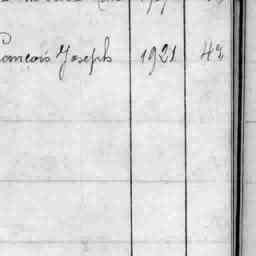 François Joseph 1921 48